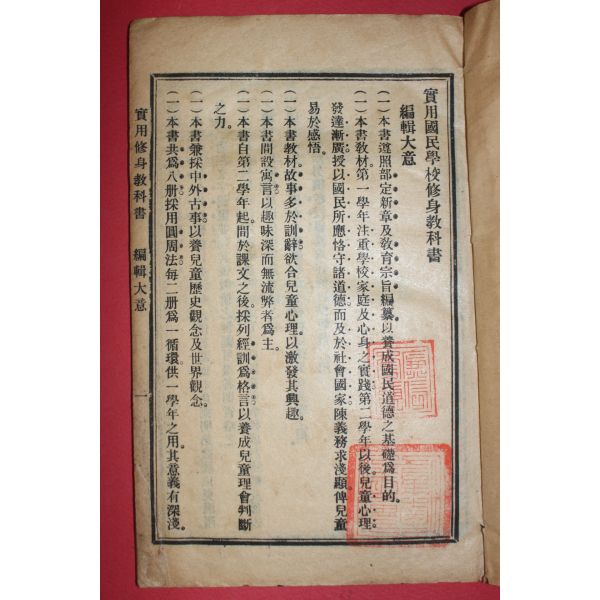 實用國民學校修身教科書
編輯大意
(一)本書遵照部定新章及教育宗旨編纂以養成國民道德之基礎爲目的。
(一)本書教材第一學年注重學校家庭及心身之實踐第二學年以後兒童心理
發達漸廣授以國民所應恪守諸道德而及於社會國家陳義務求淺顯俾兒童
易於感悟。
(一)本書教材故事多於訓辭欲合兒童心理以激發其興趣。
(一)本書間設寓言以趣味深而無流弊者爲主。
(一)本書自第二學年起間於課文之後採列經訓爲格言以養成兒童理會判斷
之力。
(一)本書兼採中外古事以養兒童歷史觀念及世界觀念。
(一)本書共爲八册採用圓周法每二册爲一循環供一學年之用其意義有深淺
實用修身教科書 編輯大意 一